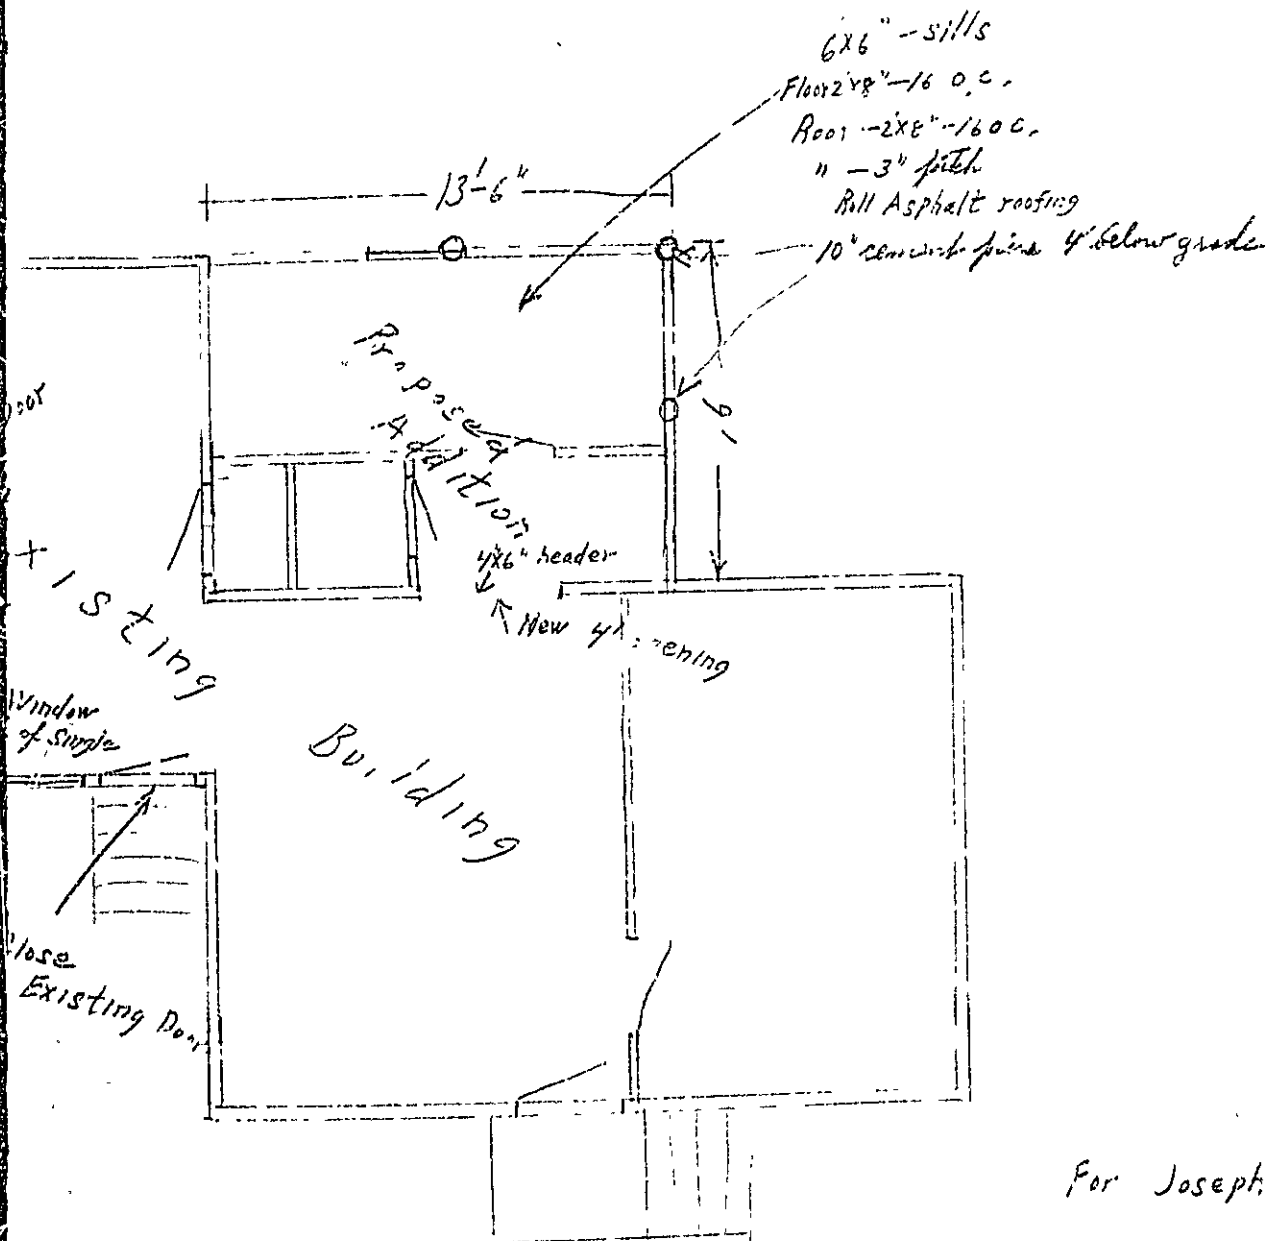 6x6" - sills
Floor 2"x8" - 16 o.c.
Roof - 2x8" - 16 o.c.
" - 3" pitch
Roll Asphalt roofing
10" cement piers 4' below grade
13'-6"
9'
Proposed
Addition
4"x6" header
New 4'
isting
Building
Window
of Single
lose
Existing Door
For Joseph